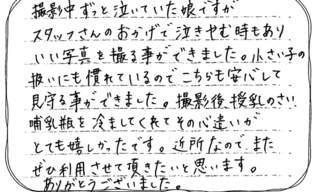 撮影中ずっと泣いていた娘ですが
スタッフさんのおかげで泣きやむ時もあり
いい写真を撮る事ができました。小さい子の
扱いにも慣れているのでこちらも安心して
見守る事ができました。撮影後、授乳のさい
哺乳瓶を冷ましてくれてその心遣いが
とても嬉しかったです。近所なので、また
ぜひ利用させて頂きたいと思います。
ありがとうございました。